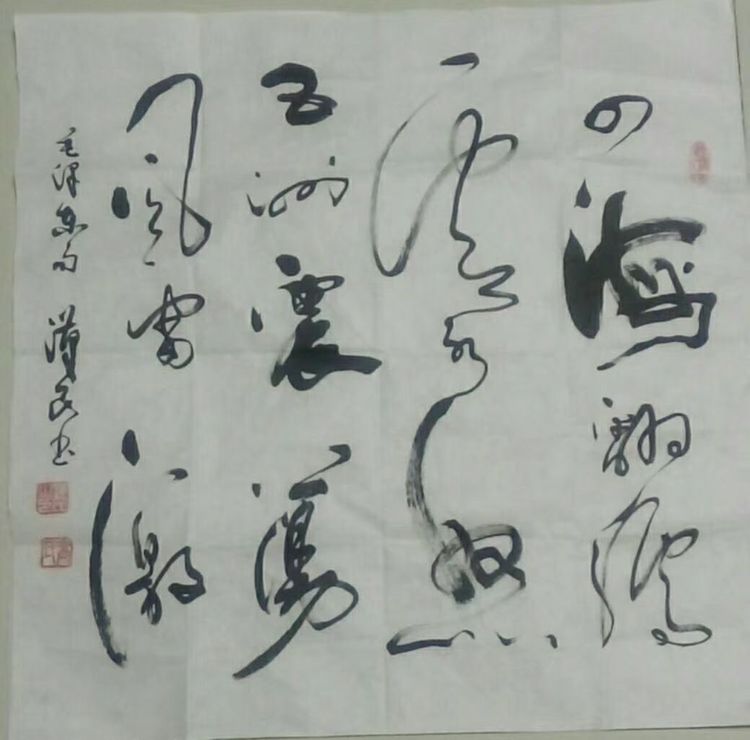 四海翻腾
云水怒
五洲震荡
风雷激
毛泽东句 汉民书